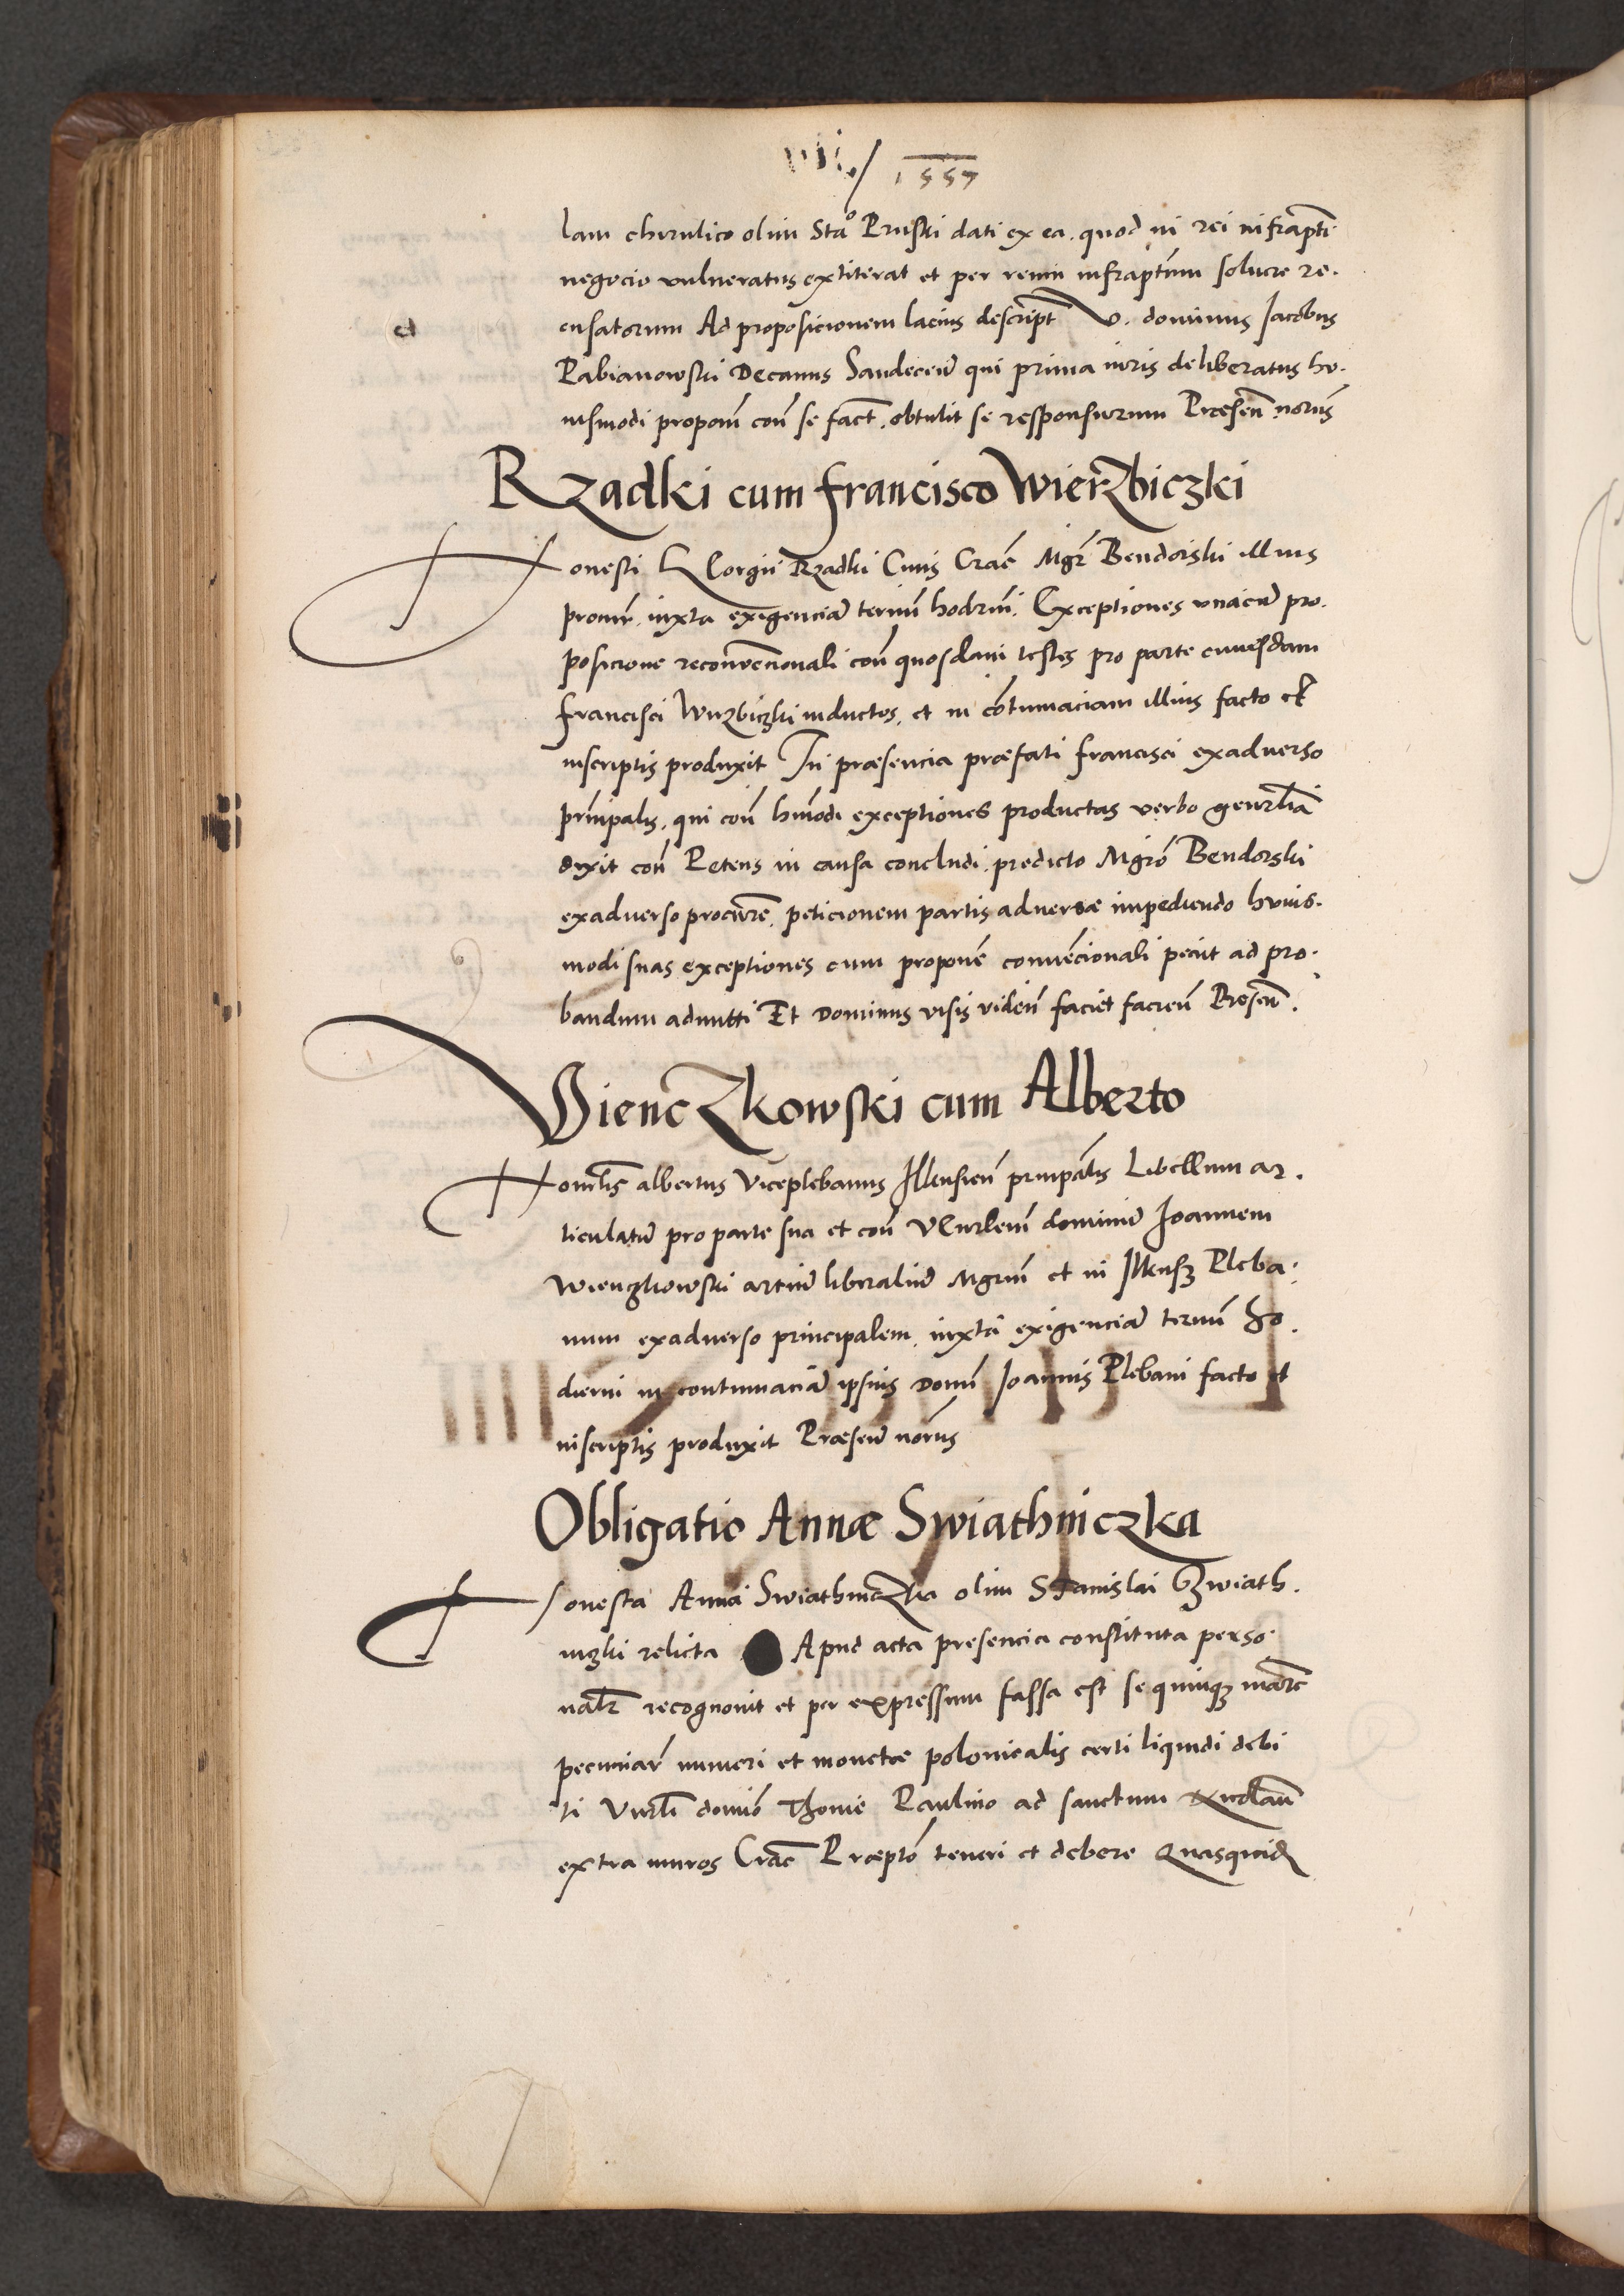 1557
lam chirulico olim Sta⁰ Pruski dati ex ea. quod in rei infrapti
negocio vulneratus extiterat et per reum infraptum soluere re.
cusatorum Ad proposicionem lacius descript V. dominus Jacobus
Pabianowski Decanus Sandeceñ qui prima iuris deliberatus hu.
iusmodi propoñ coñ se fact. obtulit se responsurum Præseñ norus
Rzadki cum francisco Wierzbiczki
Honesti Georgii Rzadki Ciuis Crac Mgr Bendorski illius
procur. iuxta exigenciã termi hodrni. Exceptiones vnacũ pro.
posicione reconvencionali coñ quosdam testes pro parte cuiusdam
francisci Wirzbiczki inductos, et in cõtumaciam illius facto et
inscriptis produxit In præsencia præfati francisci exaduerso
prinipalis. qui coñ hmodi exceptiones productas verbo genrlia
dixit coñ Petens in causa concludi. predicto Mgro Bendorski
exaduerso procure. peticionem partis aduersæ impediendo huius.
modi suas exceptiones cum proponẽ conuẽcionali peciit ad pro.
bandum admitti Et Dominus visis videñ faciet facieñ Preseñ.
VienczKowski cum Alberto
Honrlis albertus Viceplebanus Illkusieñ prinpalis Libellum ar.
ticulatũ pro parte sua et coñ Vẽnrlem dominũ Joannem
Wienczkowski artiũ liberaliũ Mgrum et in Ilkusz Pleba.
num exaduerso principalem. iuxta exigenciã termi ho.
dierni in contumaciã ipsius Domi Joannis Plebani facto et
inscriptis produxit Præseñ norus
Obligatio Annæ Swiathniczka
Honesta Anna Swiathniczka olim Stanislai Szwiath.
niczki relicta Apud acta presencia constituta perso.
nalr recognouit et per expressum fassa est se quinqz marc
pecuniar numeri et monetæ polonicalis certi liquidi debi
ti Vnrli domio Thome Paulino ad sanctum
extra muros Crac Præpto teneri et debere Quasquid